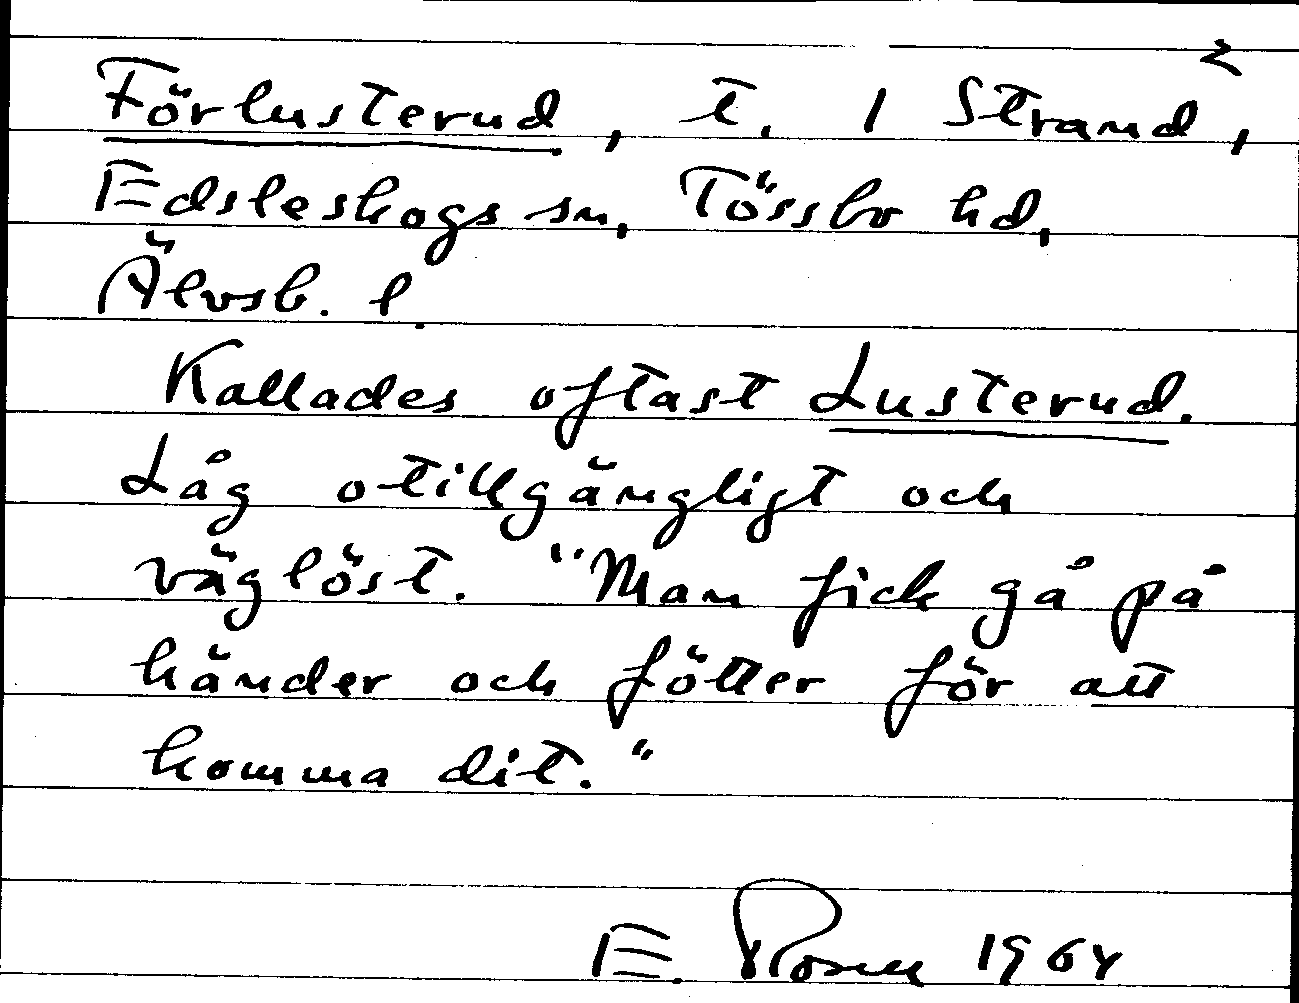 2
Förlusterud, t. 1 Strand,
Edsleskogs sn, Tössbo hd,
Älvsb. l.
Kallades oftast Lusterud.
Låg otillgängligt och
väglöst. "Man fick gå på
händer och fötter för att
komma dit."
E. Rosell 1964